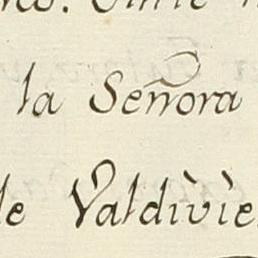 la Señora
de Valdìvìe